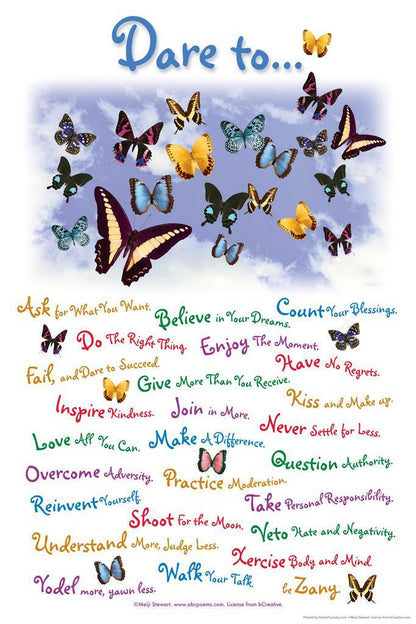 Dare to...
Ask for What You Want.
Believe in Your Dreams.
Count Your Blessings.
Do The Right Thing.
Enjoy The Moment.
Fail, and Dare to Succeed.
Have No Regrets.
Give More Than You Receive.
Kiss and Make up.
Inspire Kindness.
Join in More.
Never Settle for Less.
Love All You Can.
Make A Difference.
Question Authority.
Overcome Adversity.
Practice Moderation.
Reinvent Yourself.
Take Personal Responsibility.
Shoot For the Moon.
Veto Hate and Negativity.
Understand More, Judge Less.
Xercise Body and Mind
Yodel more, yawn less.
Walk Your Talk.
be Zany
©Meiji Stewart. www.abcpoems.com. License from bCreative.